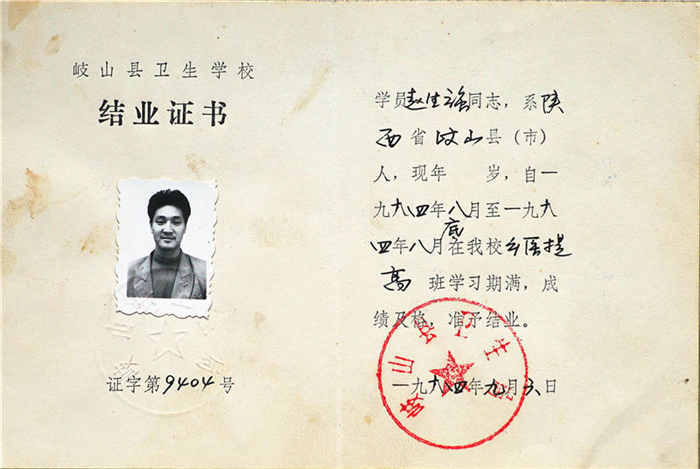 岐山县卫生学校
结业证书
证字第9404号
学员赵生强同志，系陕
西省岐山县（市）
人，现年 岁，自一
九八四年八月至一九八
四年八月底在我校乡医提
高 班学习期满，成
绩及格，准予结业。
一九八四年九月 日
岐山县卫生学校